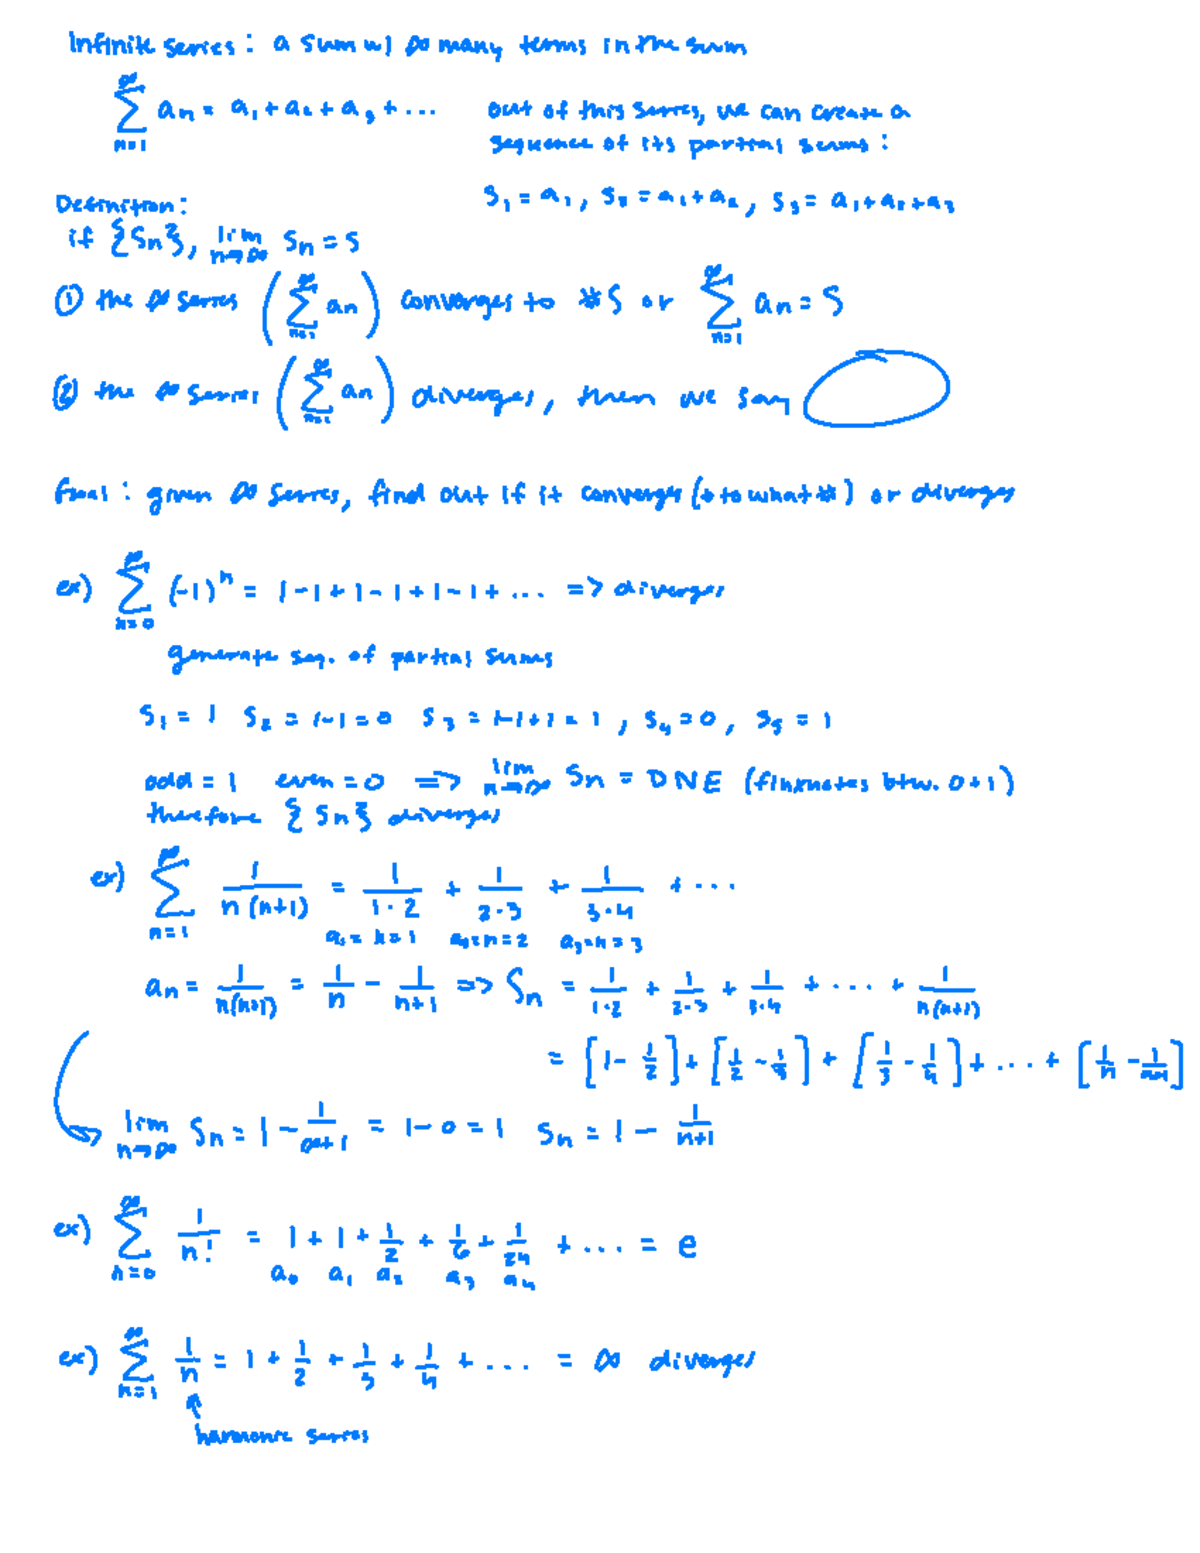 Infinite series: a sum w/ ∞ many terms in the sum
∞∑n=1 an = a1 + a2 + a3 + ... out of this series, we can create a
sequence of its partial sums:
S1 = a1, S2 = a1 + a2, S3 = a1 + a2 + a3
Definition:
if {Sn}, lim n→∞ Sn = S
① the ∞ series (∞∑n=1 an) converges to #S or ∞∑n=1 an = S
② the ∞ series (∞∑n=1 an) diverges, then we say
: given ∞ series, find out if it converges (+ to what #) or diverges
ex) ∞∑n=0 (-1)^n = 1 - 1 + 1 - 1 + 1 - 1 + ... => diverges
generate seq. of partial sums
S1 = 1 S2 = 1-1 = 0 S3 = 1-1+1 = 1, S4 = 0, S5 = 1
odd = 1 even = 0 => lim n→∞ Sn = DNE ( btw. 0+1)
therefore {Sn} diverges
ex) ∞∑n=1 1/n(n+1) = 1/1·2 + 1/2·3 + 1/3·4 + ...
a1 = n=1 a2 = n=2 a3 = n=3
an = 1/n(n+1) = 1/n - 1/n+1 => Sn = 1/1·2 + 1/2·3 + 1/3·4 + ... + 1/n(n+1)
= [1 - 1/2] + [1/2 - 1/3] + [1/3 - 1/4] + ... + [1/n - 1/n+1]
lim n→∞ Sn = 1 - 1/∞+1 = 1 - 0 = 1 Sn = 1 - 1/n+1
ex) ∞∑n=0 1/n! = 1 + 1 + 1/2 + 1/6 + 1/24 + ... = e
a0 a1 a2 a3 a4
ex) ∞∑n=1 1/n = 1 + 1/2 + 1/3 + 1/4 + ... = ∞ diverges
harmonic series